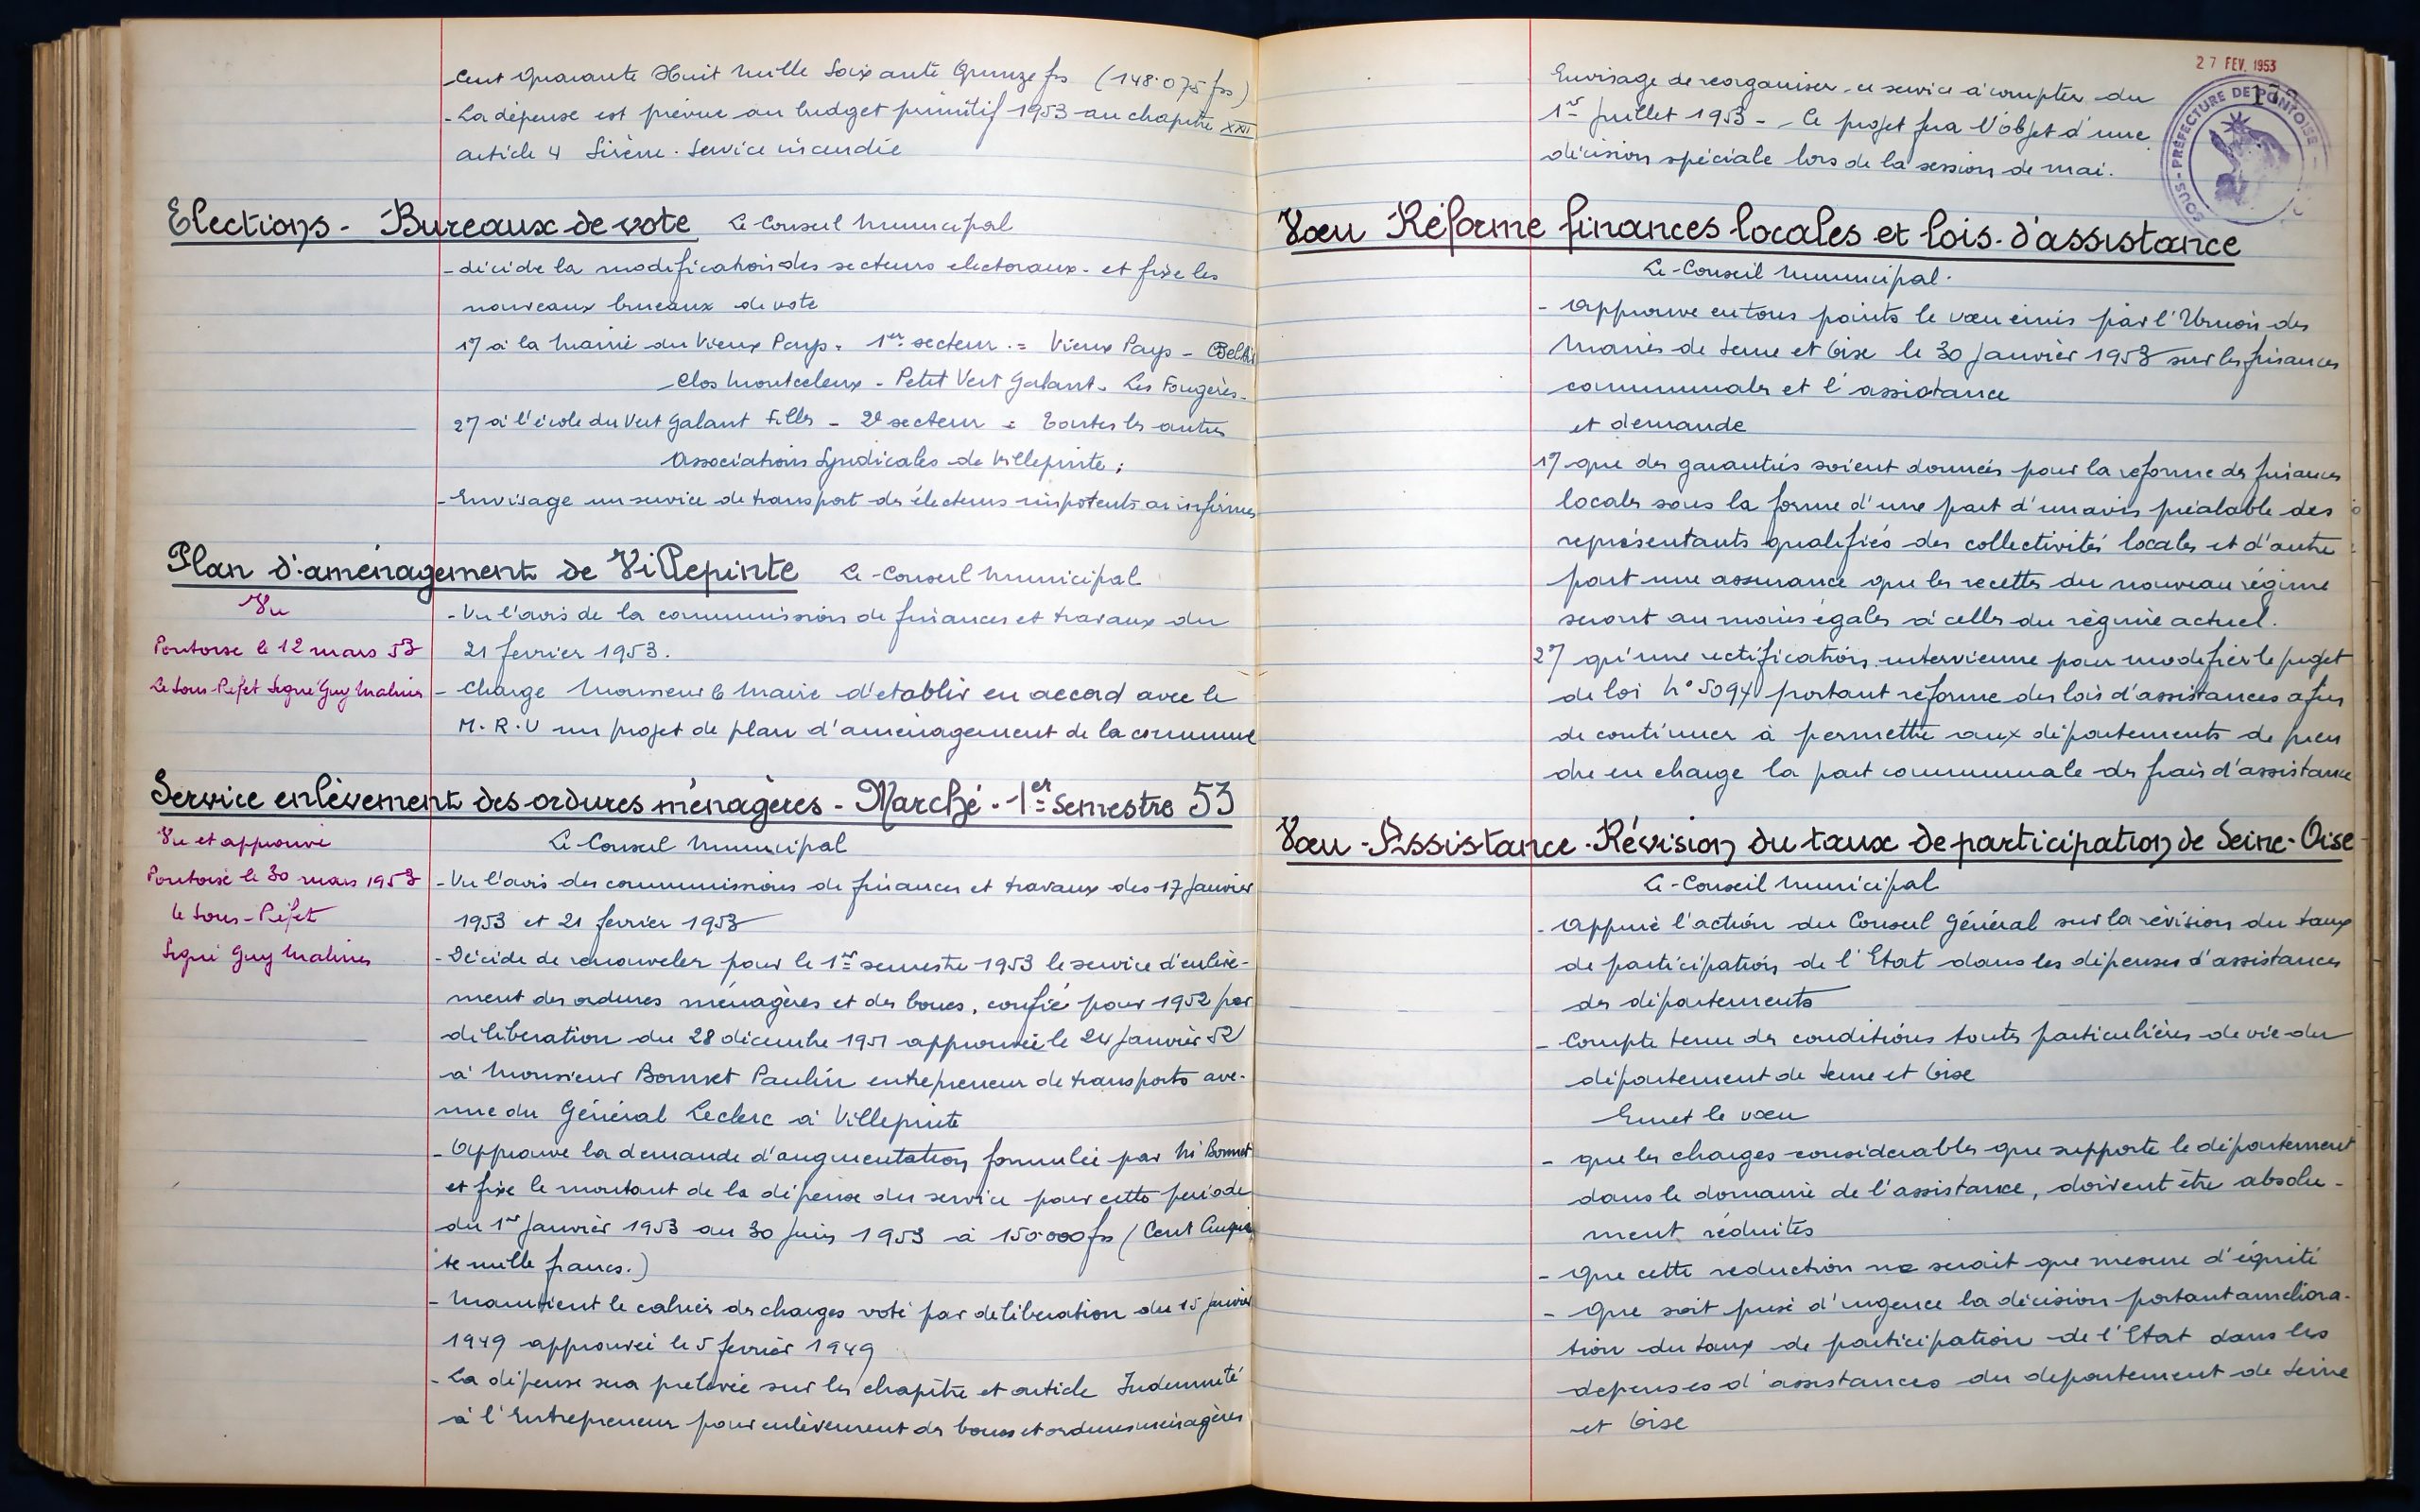 Cent Quarante Huit mille Soixante Quinze frs (148.075 frs)
- La dépense est prévue au budget primitif 1953 au chapitre XXI
article 4 Sirène. Service incendie
Elections - Bureaux de vote Le Conseil Municipal
- décide la modification des secteurs electoraux - et fixe les
nouveaux bureaux de vote
1°/ à la Mairie du Vieux Pays - 1er secteur = Vieux Pays -
Clos Montceleux - Petit Vert Galant - Les Fougères -
2°/ à l'école du Vert Galant Filles - 2e secteur = Toutes les autres
Associations Syndicales de Villepinte ;
- Envisage un service de transport des électeurs impotents ou infirmes
Plan d'aménagement de Villepinte Le Conseil Municipal
Vu
Pontoise le 12 mars 53
Le Sous-Préfet Signé Guy Malines
- Vu l'avis de la commission de finances et travaux du
21 fevrier 1953.
- Charge Monsieur le Maire d'etablir en accord avec le
M.R.U un projet de plan d'aménagement de la commune
Service enlèvement des ordures ménagères - Marché - 1er Semestre 53
Vu et approuvé
Pontoise le 30 mars 1953
le Sous-Préfet
Signé Guy Malines
Le Conseil Municipal
- Vu l'avis des commissions de finances et travaux des 17 Janvier
1953 et 21 fevrier 1953
- Décide de renouveler pour le 1er semestre 1953 le service d'enlève-
ment des ordures ménagères et des boues, confié pour 1952 par
déliberation du 28 décembre 1951 approuvée le 24 Janvier 52
à Monsieur Bonnet Paulin entrepreneur de transports ave-
nue du Général Leclerc à Villepinte
- Approuve la demande d'augmentation formulée par Mr Bonnet
et fixe le montant de la dépense du service pour cette periode
du 1er Janvier 1953 au 30 Juin 1953 à 150.000 frs (Cent Cinquan
te mille francs.)
- Maintient le cahier des charges voté par deliberation du 15 Janvier
1949 approuvée le 5 fevrier 1949
- La dépense sera prelevée sur les chapitre et article Indemnité
à l'Entrepreneur pour enlèvement des boues et ordures ménagères
27 FEV. 1953
SOUS-PRÉFECTURE DE PONTOISE
Envisage de reorganiser ce service à compter du
1er Juillet 1953 - Ce projet fera l'objet d'une
décision spéciale lors de la session de mai.
Vœu Réforme finances locales et lois d'assistance
Le Conseil Municipal.
- Approuve en tous points le vœu émis par l'Union des
Maires de Seine et Oise le 30 Janvier 1953 sur les finances
communales et l'assistance
et demande
1°/ que des garanties soient données pour la reforme des finances
locales sous la forme d'une part d'un avis préalable des
représentants qualifiés des collectivités locales et d'autre
part une assurance que les recettes du nouveau régime
seront au moins égales à celles du régime actuel.
2°/ qu'une rectification intervienne pour modifier le projet
de loi N° 5094 portant réforme des lois d'assistances afin
de continuer à permettre aux départements de pren
dre en charge la part communale des frais d'assistance
Vœu - Assistance - Révision du taux de participation de Seine-Oise
Le Conseil Municipal
- Appuie l'action du Conseil Général sur la révision du taux
de participation de l'Etat dans les dépenses d'assistances
des départements
- Compte tenu des conditions toutes particulières de vie du
département de Seine et Oise
Emet le vœu
- que les charges considerables que supporte le département
dans le domaine de l'assistance, doivent être absolu-
ment réduites
- Que cette reduction ne serait que mesure d'équité
- Que soit prise d'urgence la décision portant améliora-
tion du taux de participation de l'Etat dans les
depenses d'assistances du departement de Seine
et Oise